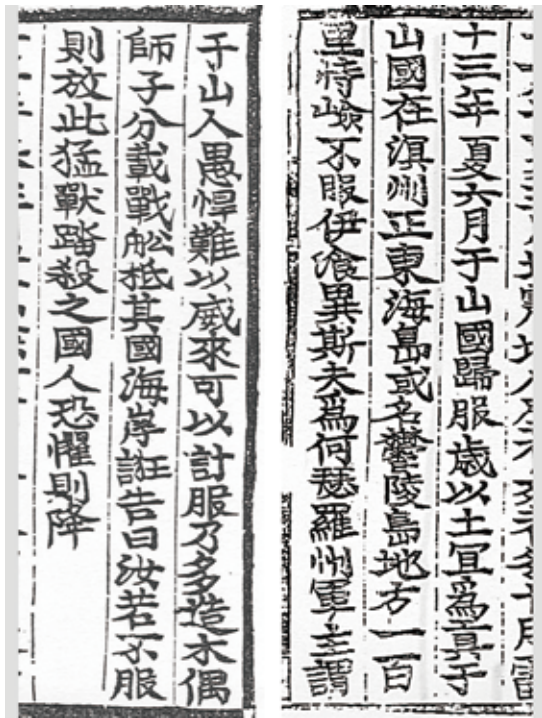 十三年夏六月于山國歸服歲以土宜爲貢于
山國在溟州正東海島或名鬱陵島地方一百
里恃嶮不服伊湌異斯夫爲何瑟羅州軍主謂
于山人愚悍難以威來可以計服乃多造木偶
師子分載戰舩抵其國海岸誑告曰汝若不服
則放此猛獸踏殺之國人恐懼則降